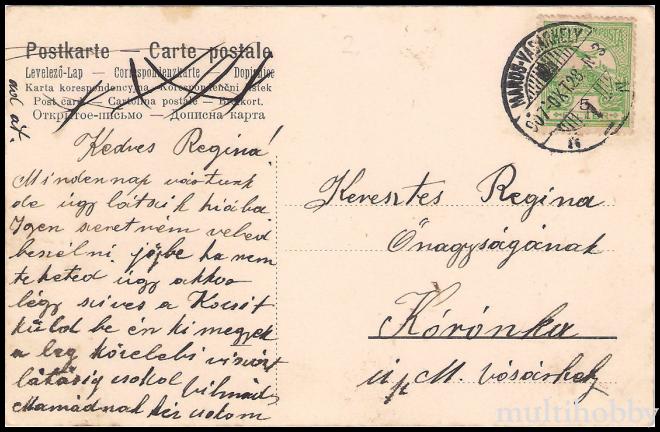 Postkarte — Carte postale
Levelező-Lap — Correspondenzkarte — Dopisnice
Karta korespondencyjna — Korespondenční lístek
Post card — Cartolina postale — Brefkort.
Открытое-письмо — Дописна карта
Kedves Regina!
Mindennap vártunk
de úgy látszik hiába
Igen szeretném veled
beszélni jőjbe ha nem
teheted úgy akkor
légy szives a Kocsit
küld be én kimegyek
a leg közelebi viszont
látásig csokol
Mamádnak kéz csokom
Keresztes Regina
Őnagyságának
Kórónka
u. p. M. Vásárhely
MAROS-VÁSÁRHELY
907 OKT 28
5
multihobby